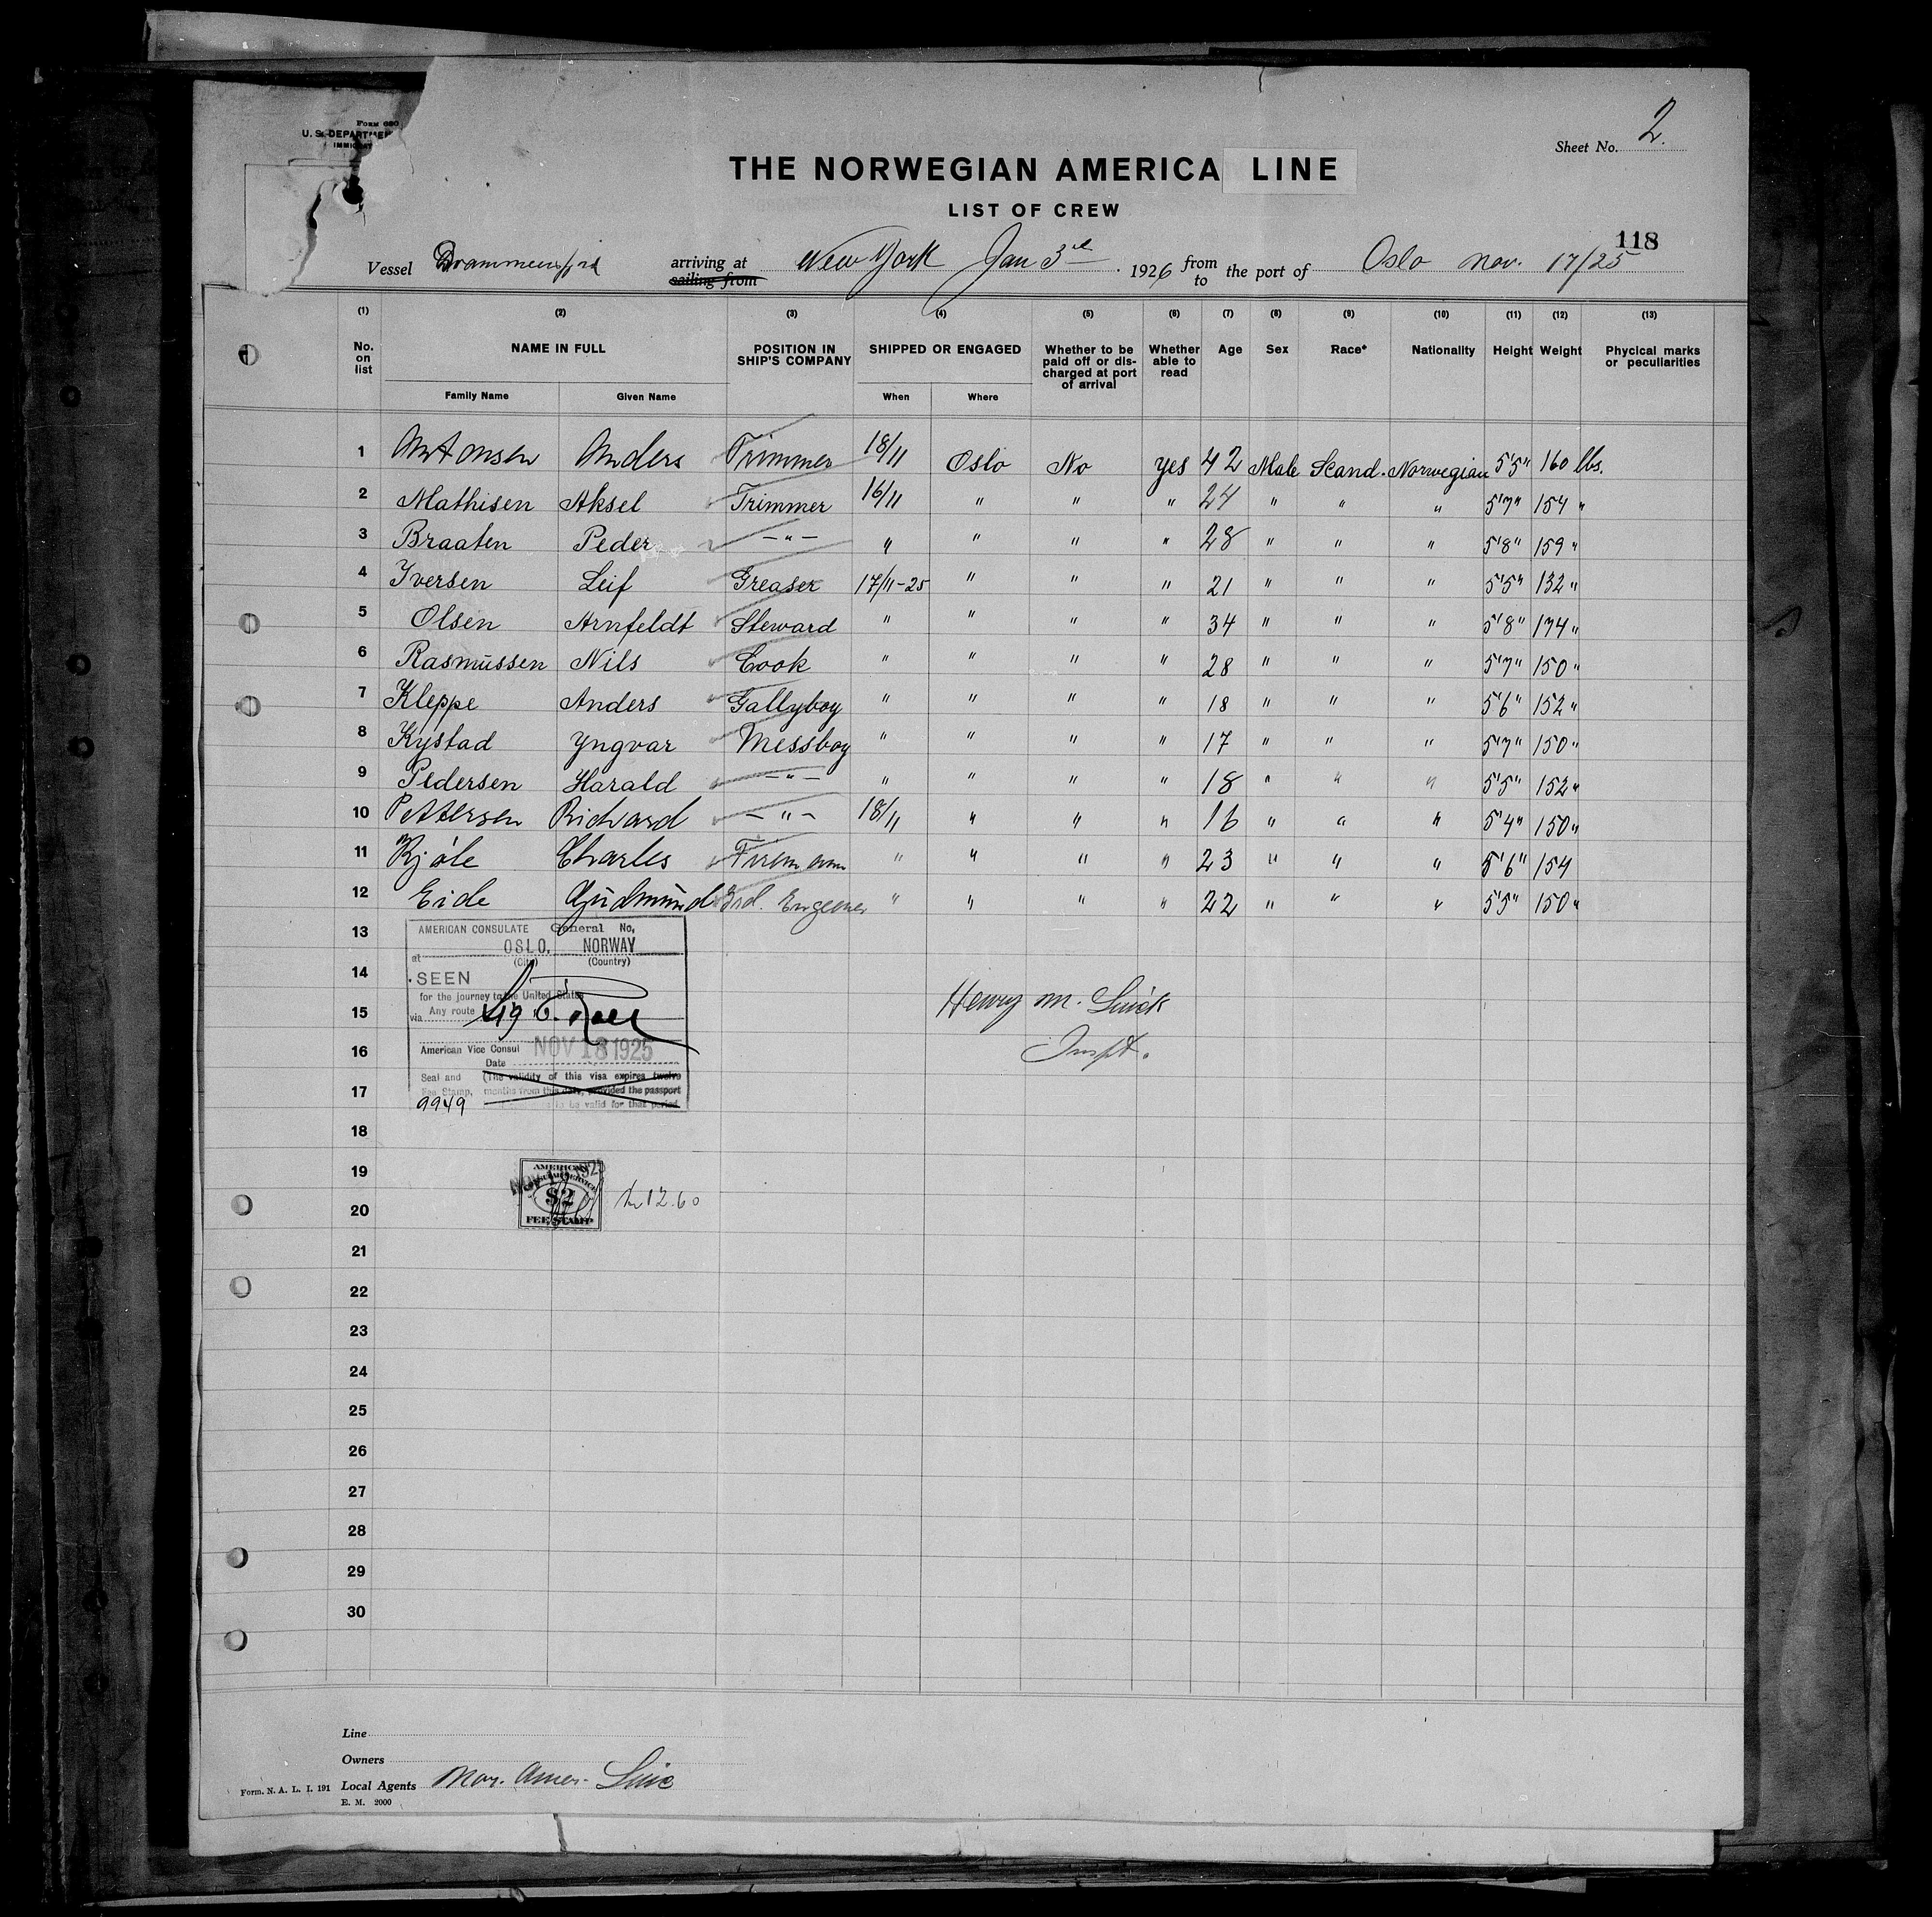 Form 680
U. S. DEPARTMEN
IMMIGRAT
Sheet No. 2.
THE NORWEGIAN AMERICA LINE
LIST OF CREW
118
Vessel Drammensfjord arriving at sailing from New York Jan 3rd 1926 from to the port of Oslo Nov. 17/25
(1) (2) (3) (4) (5) (6) (7) (8) (9) (10) (11) (12) (13)
No. on list NAME IN FULL POSITION IN SHIP'S COMPANY SHIPPED OR ENGAGED Whether to be paid off or dis-charged at port of arrival Whether able to read Age Sex Race* Nationality Height Weight Phycical marks or peculiarities
Family Name Given Name When Where
1 Antonsen Anders Trimmer 18/11 Oslo No yes 42 Male Scand. Norwegian 5'5" 160 lbs.
2 Mathisen Aksel Trimmer 16/11 " " " 24 " " " 5'7" 154 "
3 Braaten Peder —"— " " " " 28 " " " 5'8" 159 "
4 Iversen Leif Greaser 17/11-25 " " " 21 " " " 5'5" 132 "
5 Olsen Arnfeldt Steward " " " " 34 " " " 5'8" 174 "
6 Rasmussen Nils Cook " " " " 28 " " " 5'7" 150 "
7 Kleppe Anders Gallyboy " " " " 18 " " " 5'6" 152 "
8 Kystad Yngvar Messboy " " " " 17 " " " 5'7" 150 "
9 Pedersen Harald —"— " " " " 18 " " " 5'5" 152 "
10 Pettersen Richard —"— 18/11 " " " 16 " " " 5'4" 150 "
11 Kjøle Charles Fireman " " " " 23 " " " 5'6" 154
12 Eide Gudmund 3rd. Engeener " " " " 22 " " " 5'5" 150 "
13
14
15
16
17
18
19
20
21
22
23
24
25
26
27
28
29
30
AMERICAN CONSULATE General No,
at OSLO, NORWAY
(City) (Country)
SEEN
for the journey to the United States
via Any route
American Vice Consul
Date NOV 18 1925
Seal and (The validity of this visa expires twelve
Fee Stamp, months from this date, provided the passport
to be valid for that period.
9949
Henry M.
Inspt.
AMERICAN
CONSULAR SERVICE
$2
FEE STAMP
kr 12.60
Line
Owners
Form. N. A. L. I. 191 Local Agents Nor. Amer. Line
E. M. 2000